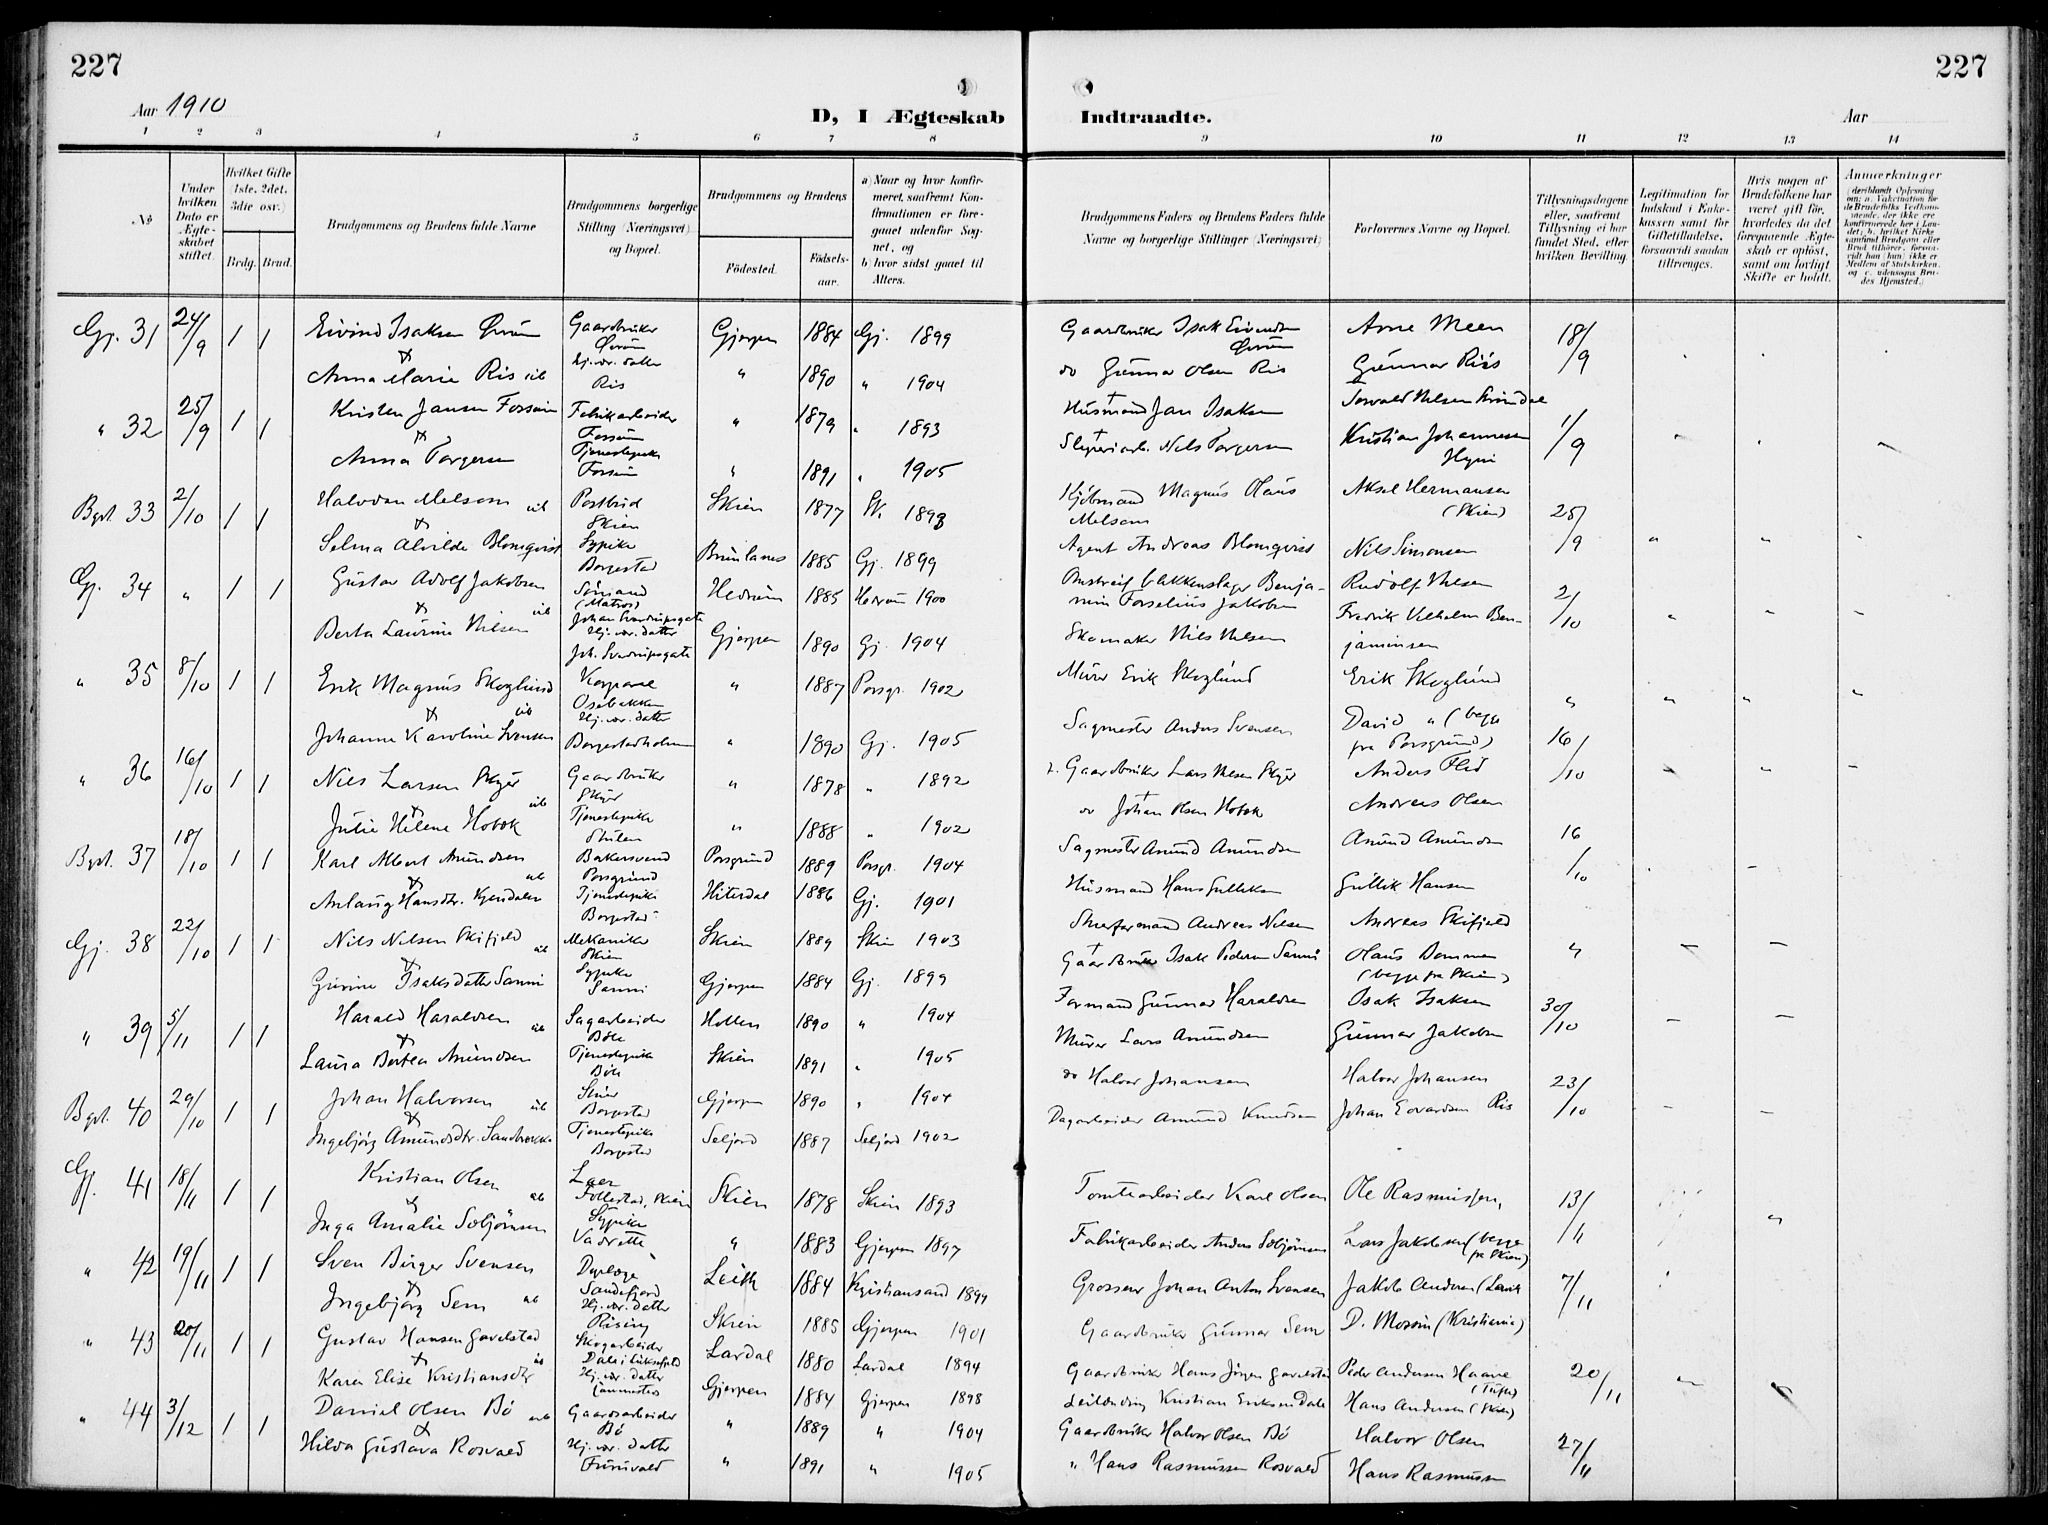 227
227
Aar 1910
D, I Ægteskab
Indtraadte.
Aar
1 2 3 4 5 6 7 8 9 10 11 12 13 14
No
Under hvilken Dato er Ægteskabet stiftet.
Hvilket Gifte (1ste, 2det, 3die osv.)
Brdg. Brud.
Brudgommens og Brudens fulde Navne
Brudgommens borgerlige Stilling (Næringsvei) og Bopæl.
Brudgommens og Brudens
Födested.
Födselsaar.
a) Naar og hvor konfirmeret, saafremt Konfirmationen er foregaaet udenfor Sognet, og
b) hvor sidst gaaet til Alters.
Brudgommens Faders og Brudens Faders fulde Navne og borgerlige Stillinger (Næringsvei)
Forlovernes Navne og Bopæl.
Tillysningsdagene eller, saafremt Tillysning ei har fundet Sted, efter hvilken Bevilling.
Legitimation for Indskud i Enkekassen samt for Giftetilladelse, forsaavidt saadan tiltrænges.
Hvis nogen af Brudefolkene har været gift för, hvorledes da det foregaaende Ægteskab er oplöst, samt om lovligt Skifte er holdt.
Anmærkninger
Gj. 31 24/9 1 1 Eivind Isaksen Gaardbruker Gjerpen 1884 Gj. 1899 Gaardbruker Isak Arne Meen 18/9
Anna Marie Ris ub Hj. vær. datter Ris " 1890 " 1904 do Gunnar Olsen Ris Gunnar Riis
" 32 25/9 1 1 Kristen Jansen Fossum Fabrikarbeider Fossum " 1879 " 1893 Husmand Jan Isaksen 1/9
Anna Torgersen Tjenestepike Fossum " 1891 " 1905 Sliperiarb. Nils Torgersen Kristian Johannesen
Bgst. 33 2/10 1 1 Halvdan Melsom ub Postbud Skien Skien 1877 Sk. 1893 Kjöbmand Magnus Olaus Melsom Aksel Hermansen (Skien) 25/9
Selma Alvilde Blomqvist Sypike Borgestad Brunlanes 1885 Gj. 1899 Agent Andreas Blomqvist Nils Simonsen
Gj. 34 " 1 1 Gustav Adolf Jakobsen ub Sömand (Matros) Johan Sverdrupsgate Hedrum 1885 Hedrum 1900 Benjamin Jakobsen Rudolf Nilsen 2/10
Berta Laurine Nilsen Hj. vær. datter Joh. Sverdrupsgate Gjerpen 1890 Gj. 1904 Skomaker Nils Nilsen Fredrik Vilhelm Benjaminsen
" 35 8/10 1 1 Erik Magnus Skoglund ub Korporal Osebakken " 1887 Porsgr. 1902 Murer Erik Skoglund Erik Skoglund "
Johanne Karoline Svensen Hj. vær. datter Borgestadholmen " 1890 Gj. 1905 Sagmester Anders Svensen David " (begge fra Porsgrund)
" 36 16/10 1 1 Nils Larsen Skyer ub Gaardbruker Skyer " 1878 " 1892 Gaardbruker Lars Nilsen Skyer Anders Flid 16/10
Julie Helene Hobæk Tjenestepike " 1888 " 1902 do Johan Olsen Hobæk Andreas Olsen
Bgst. 37 18/10 1 1 Karl Albert Amundsen ub Bakersvend Porsgrund Porsgrund 1889 Porsgr. 1904 Sagmester Amund Amundsen Amund Amundsen 16/10
Anlaug Hansdtr. Tjenestepike Borgestad Hiterdal 1886 Gj. 1901 Husmand Hans Gulliksen Gullik Hansen
Gj. 38 22/10 1 1 Nils Nilsen Skifjeld ub Mekaniker Skien Skien 1889 Skien 1903 Andreas Nilsen Andreas Skifjeld "
Gurine Isaksdatter Sanni Sypike Sanni Gjerpen 1884 Gj. 1899 Gaardbruker Isak Pedersen Sanni Olaus (begge fra Skien)
" 39 5/11 1 1 Harald Haraldsen ub Sagarbeider Böle Hollen 1890 " 1904 Formand Gunnar Haraldsen Isak Isaksen 30/10
Laura Bertea Amundsen Tjenestepike Böle Skien 1891 " 1905 Murer Lars Amundsen Gunnar Jakobsen
Bgst. 40 29/10 1 1 Johan Halvorsen ub Borgestad Gjerpen 1890 " 1904 do Halvor Johansen Halvor Johansen 23/10
Ingebjörg Amundsdtr. Tjenestepike Borgestad Seljord 1887 Seljord 1902 Dagarbeider Amund Knudsen Johan Edvardsen Ris
Gj. 41 18/11 1 1 Kristian Olsen ub Follestad, Skien Skien 1878 Skien 1893 Tomtearbeider Karl Olsen Ole Rasmussen, 13/11
Inga Amalie Sæbjörnsen Sypike Vadrette " 1883 Gjerpen 1897 Fabrikarbeider Anders Sæbjörnsen Lars Jakobsen (begge fra Skien)
" 42 19/11 1 1 Sven Birger Svensen ub Dyrlæge Sandefjord Leith 1884 Kristiansand 1899 Grosserer Johan Anton Svensen Jakob Andersen (Larvik 7/11
Ingebjörg Sem Hj. vær. datter Rising Skien 1885 Gjerpen 1901 Gaardbruker Gunnar Sem D. Mossin (Kristiania)
" 43 20/11 1 1 Gustav Hansen Gavelstad ub Skogarbeider Dale i Luksefjeld Lardal 1880 Lardal 1894 Gaardbruker Hans Jörgen Gavelstad Peder Andersen Haave 20/11
Karen Elise Kristiansdtr Hj. vær. datter Gjerpen 1884 Gjerpen 1898 Leilænding Kristian Eriksen Dale Hans Andersen (Skien)
" 44 3/12 1 1 Daniel Olsen Bö ub Gaardsarbeider Bö " 1889 " 1904 Gaardbruker Halvor Olsen Bö Halvor Olsen 27/11
Hilda Gustava Rosvald Hj. vær. datter Furuvald " 1891 " 1905 " Hans Rasmussen Rosvald Hans Rasmussen